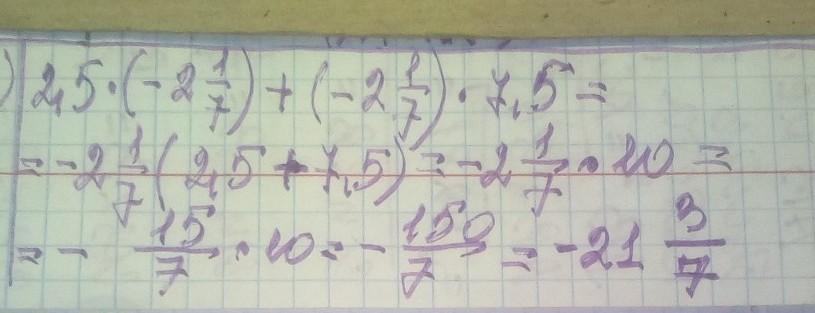 ) 2,5·(-2 1/7)+(-2 1/7)·7,5=
=-2 1/7(2,5+7,5)=-2 1/7·10=
=- 15/7·10=-150/7=-21 3/7